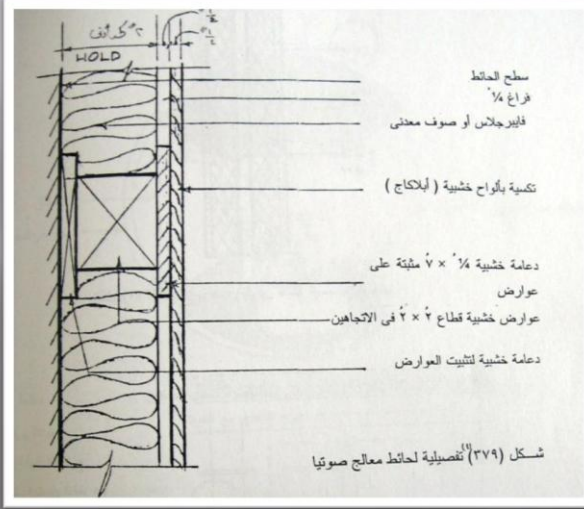 HOLD
سطح الحائط
فراغ ¼ ً
فايبرجلاس أو صوف معدنى
تكسية بألواح خشبية ( أبلاكاج )
دعامة خشبية ¼ ً × ٧ ً مثبتة على
عوارض
عوارض خشبية قطاع ٢ ً × ٢ ً فى الاتجاهين
دعامة خشبية لتثبيت العوارض
شكل (٣٧٩) تفصيلية لحائط معالج صوتيا